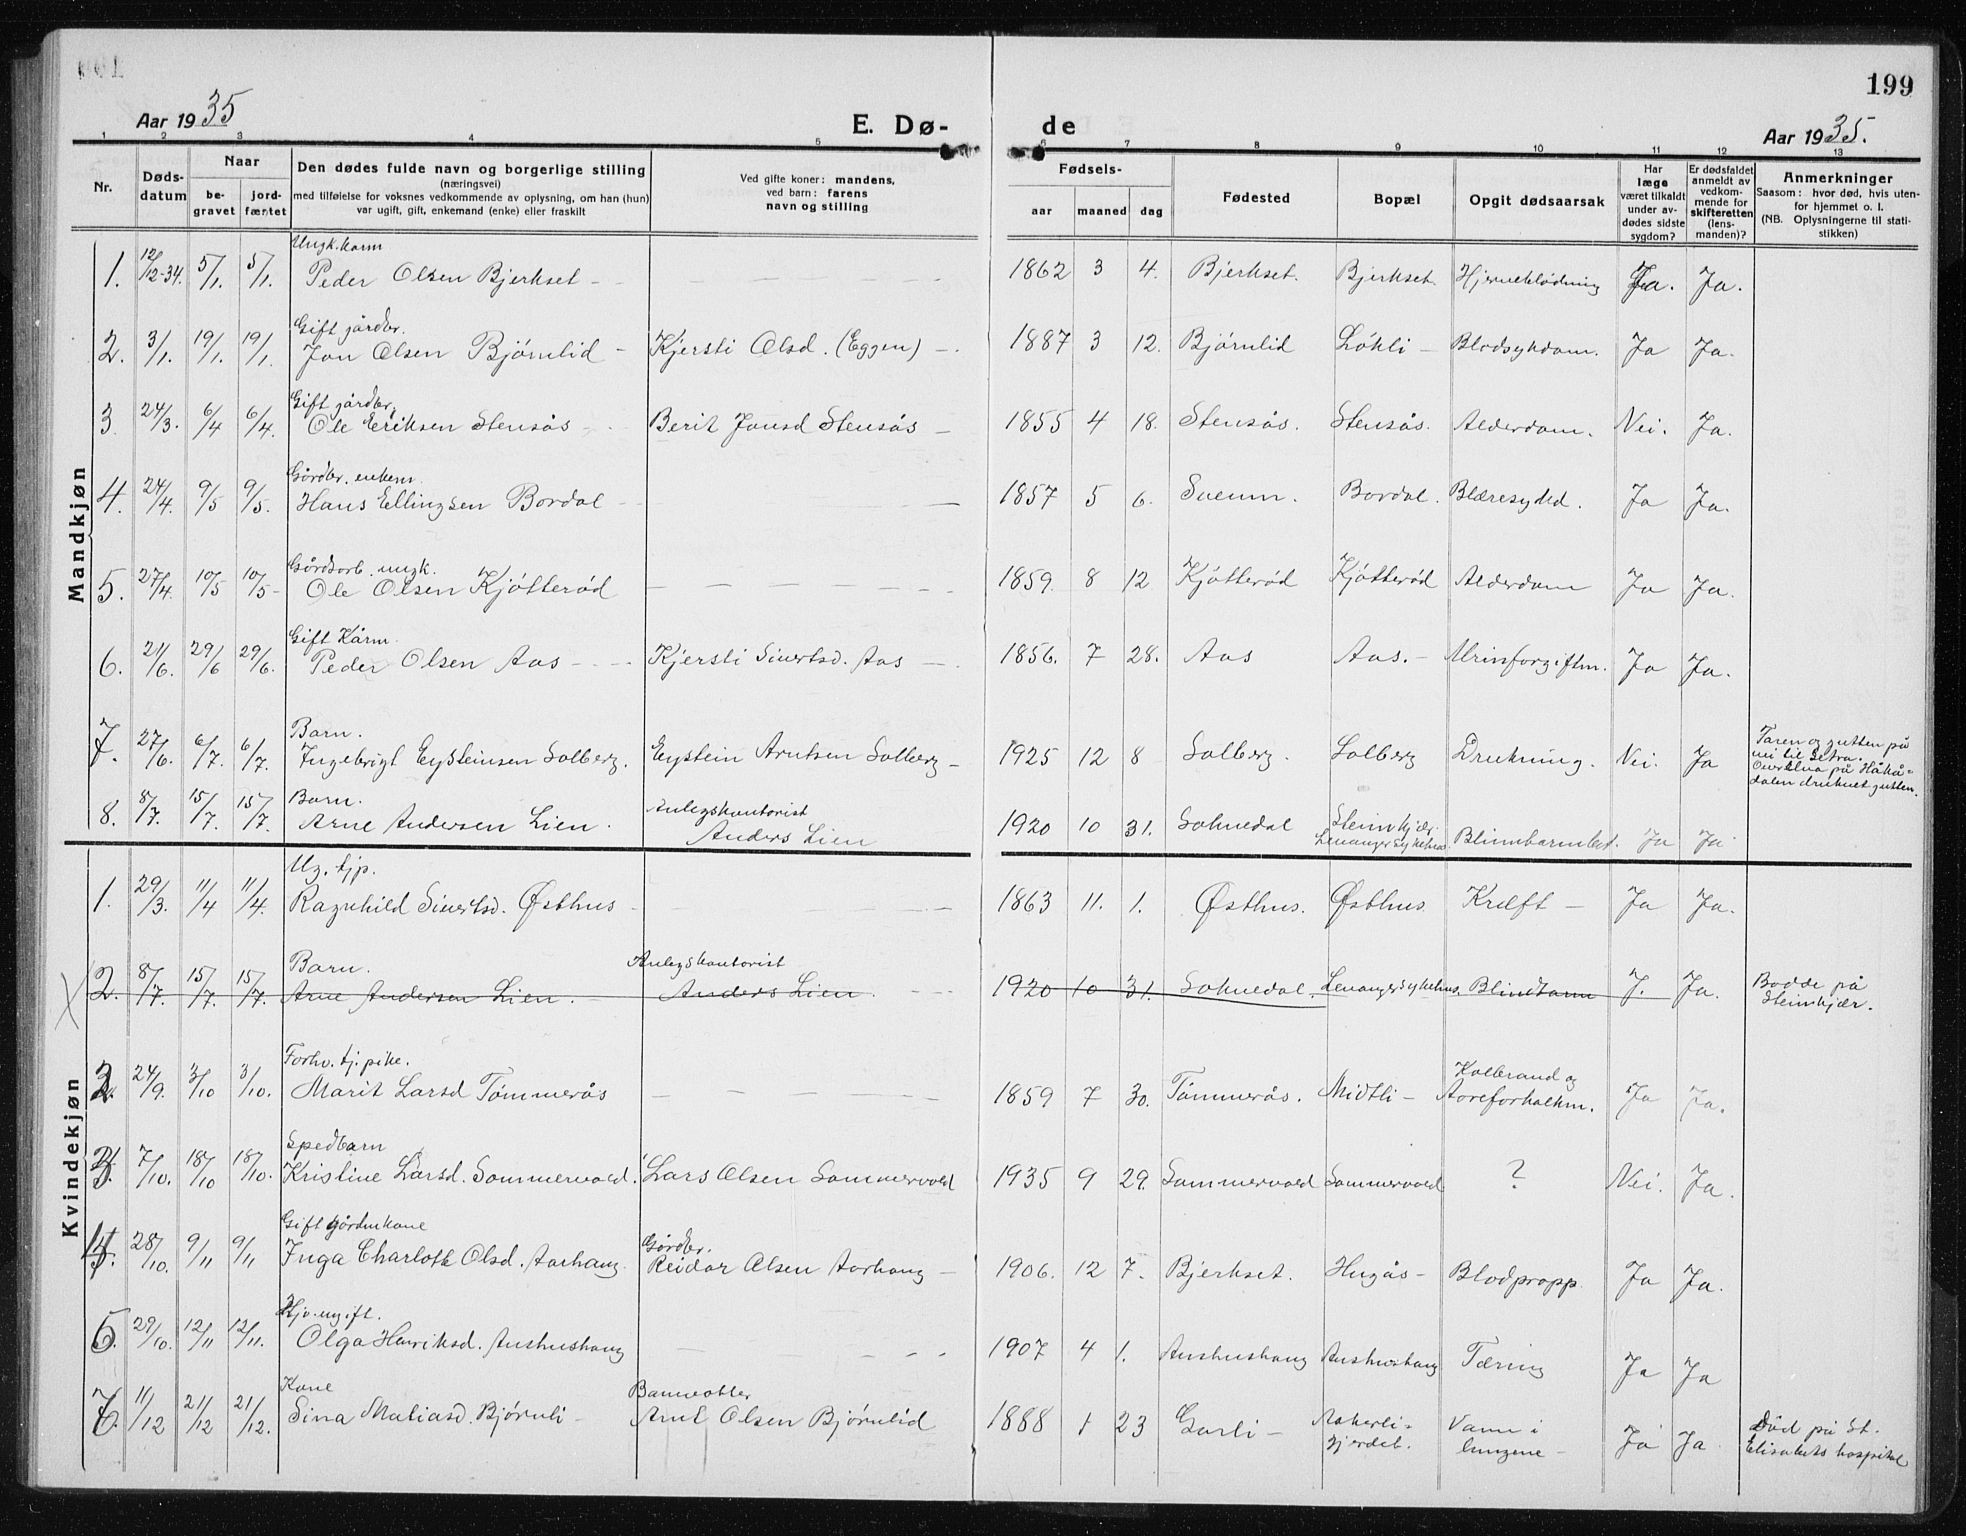 199
Aar 1935
E. Dø-
de
Aar 1935.
1 2 3 4 5 6 7 8 9 10 11 12 13
Nr.
Døds-
datum
Naar
be-
gravet
jord-
fæstet
Den dødes fulde navn og borgerlige stilling
(næringsvei)
med tilføielse for voksnes vedkommende av oplysning, om han (hun)
var ugift, gift, enkemand (enke) eller fraskilt
Ved gifte koner: mandens,
ved barn: farens
navn og stilling
Fødsels-
aar maaned dag
Fødested
Bopæl
Opgit dødsaarsak
Har
læge
været tilkaldt
under av-
dødes sidste
sygdom?
Er dødsfaldet
anmeldt av
vedkom-
mende for
skifteretten
(lens-
manden)?
Anmerkninger
Saasom: hvor død, hvis uten-
for hjemmet o. l.
(NB. Oplysningerne til stati-
stikken)
Mandkjøn
Ungk. kårm
1. 12/12-34. 5/1. 5/1. Peder Olsen Bjerkset 1862 3 4. Bjerkset. Bjerkset. Hjerneblødning Ja. Ja.
Gift gårdbr.
2. 3/1. 19/1. 19/1. Jon Olsen Bjørnlid Kjersti Olsd. (Eggen) 1887 3 12. Bjørnlid Løkli Blodsykdom. Ja Ja.
Gift gårdbr,
3 24/3. 6/4 6/4. Ole Eriksen Stensås Berit Jonsd Stensås 1855 4 18. Stensås. Stensås. Alderdom. Nei. Ja.
Gårdbr. enkem.
4. 24/4. 9/5 9/5. Hans Ellingsen Bordal 1857 5 6. Svenn. Bordal. Blæresyded. Ja Ja.
Gårdsarb. ungk.
5. 27/4. 10/5 10/5 Ole Olsen Kjøtterød 1859. 8 12 Kjøtterød Kjøtterød Alderdom Ja Ja.
Gift Kårm.
6. 21/6. 29/6 29/6. Peder Olsen Aas Kjersti Sivertsd. Aas 1856. 7 28. Aas Aas. Urinforgiftn. Ja Ja.
Barn.
7. 27/6. 6/7. 6/7. Ingebrigt Eysteinsen Solberg. Eystein Arntsen Solberg 1925 12 8 Solberg. Solberg Drukning. Nei. Ja
Faren og gutten på
vei til Setra.
Over elva på Håkå-
dalen druknet gutten.
Barn.
8. 8/7. 15/7. 15/7. Arne Andersen Lien. Anlegskontorist
Anders Lien 1920 10 31. Soknedal Steinkjær.
Levanger sykehus. Blinntarmbet. Ja Ja
Kvindekjøn
Ug. tjp.
1. 29/3. 11/4 11/4. Ragnhild Sivertsd. Østhus 1863 11. 1. Østhus. Østhus Kræft Ja Ja.
Barn.
2. 8/7. 15/7. 15/7. Arne Andersen Lien. Anlegskontorist
Anders Lien. 1920 10 31. Soknedal. Levanger sykehus. Blindtarm J. Ja.
Bodde på
Steinkjær.
Forhv. tj. pike.
2 24/9. 3/10 3/10. Marit Larsd Tømmerås 1859 7 30. Tømmerås. Midtli Kolbrand og
Aareforkalkn. Ja Ja.
Spedbarn
3 7/10. 18/10 18/10. Kristine Larsd. Sommervold. Lars Olsen Sommervold 1935 9 29. Sommervold Sommervold ? Nei. Ja.
Gift gårdmkone
4. 28/10. 9/11 9/11 Inga Charlotte Olsd. Aarhaug. Gårdbr.
Reidar Olsen Aarhaug 1906. 12 7. Bjerkset. Hugås Blodpropp. Ja Ja.
Hjv. ugift.
5. 29/10. 12/11 12/11. Olga Henriksd. Aushushaug 1907 4 1. Aushushaug Aushushaug Tæring Ja Ja
Kone
6. 11/12 21/12 21/12. Sina Matiasd. Bjørnli Banevokter
Arnt Olsen Bjørnlid 1888 1 23 Garli Aakerli-
gjerdet. Vann i
lungene Ja Ja
Død på St.
Elisabets hospital